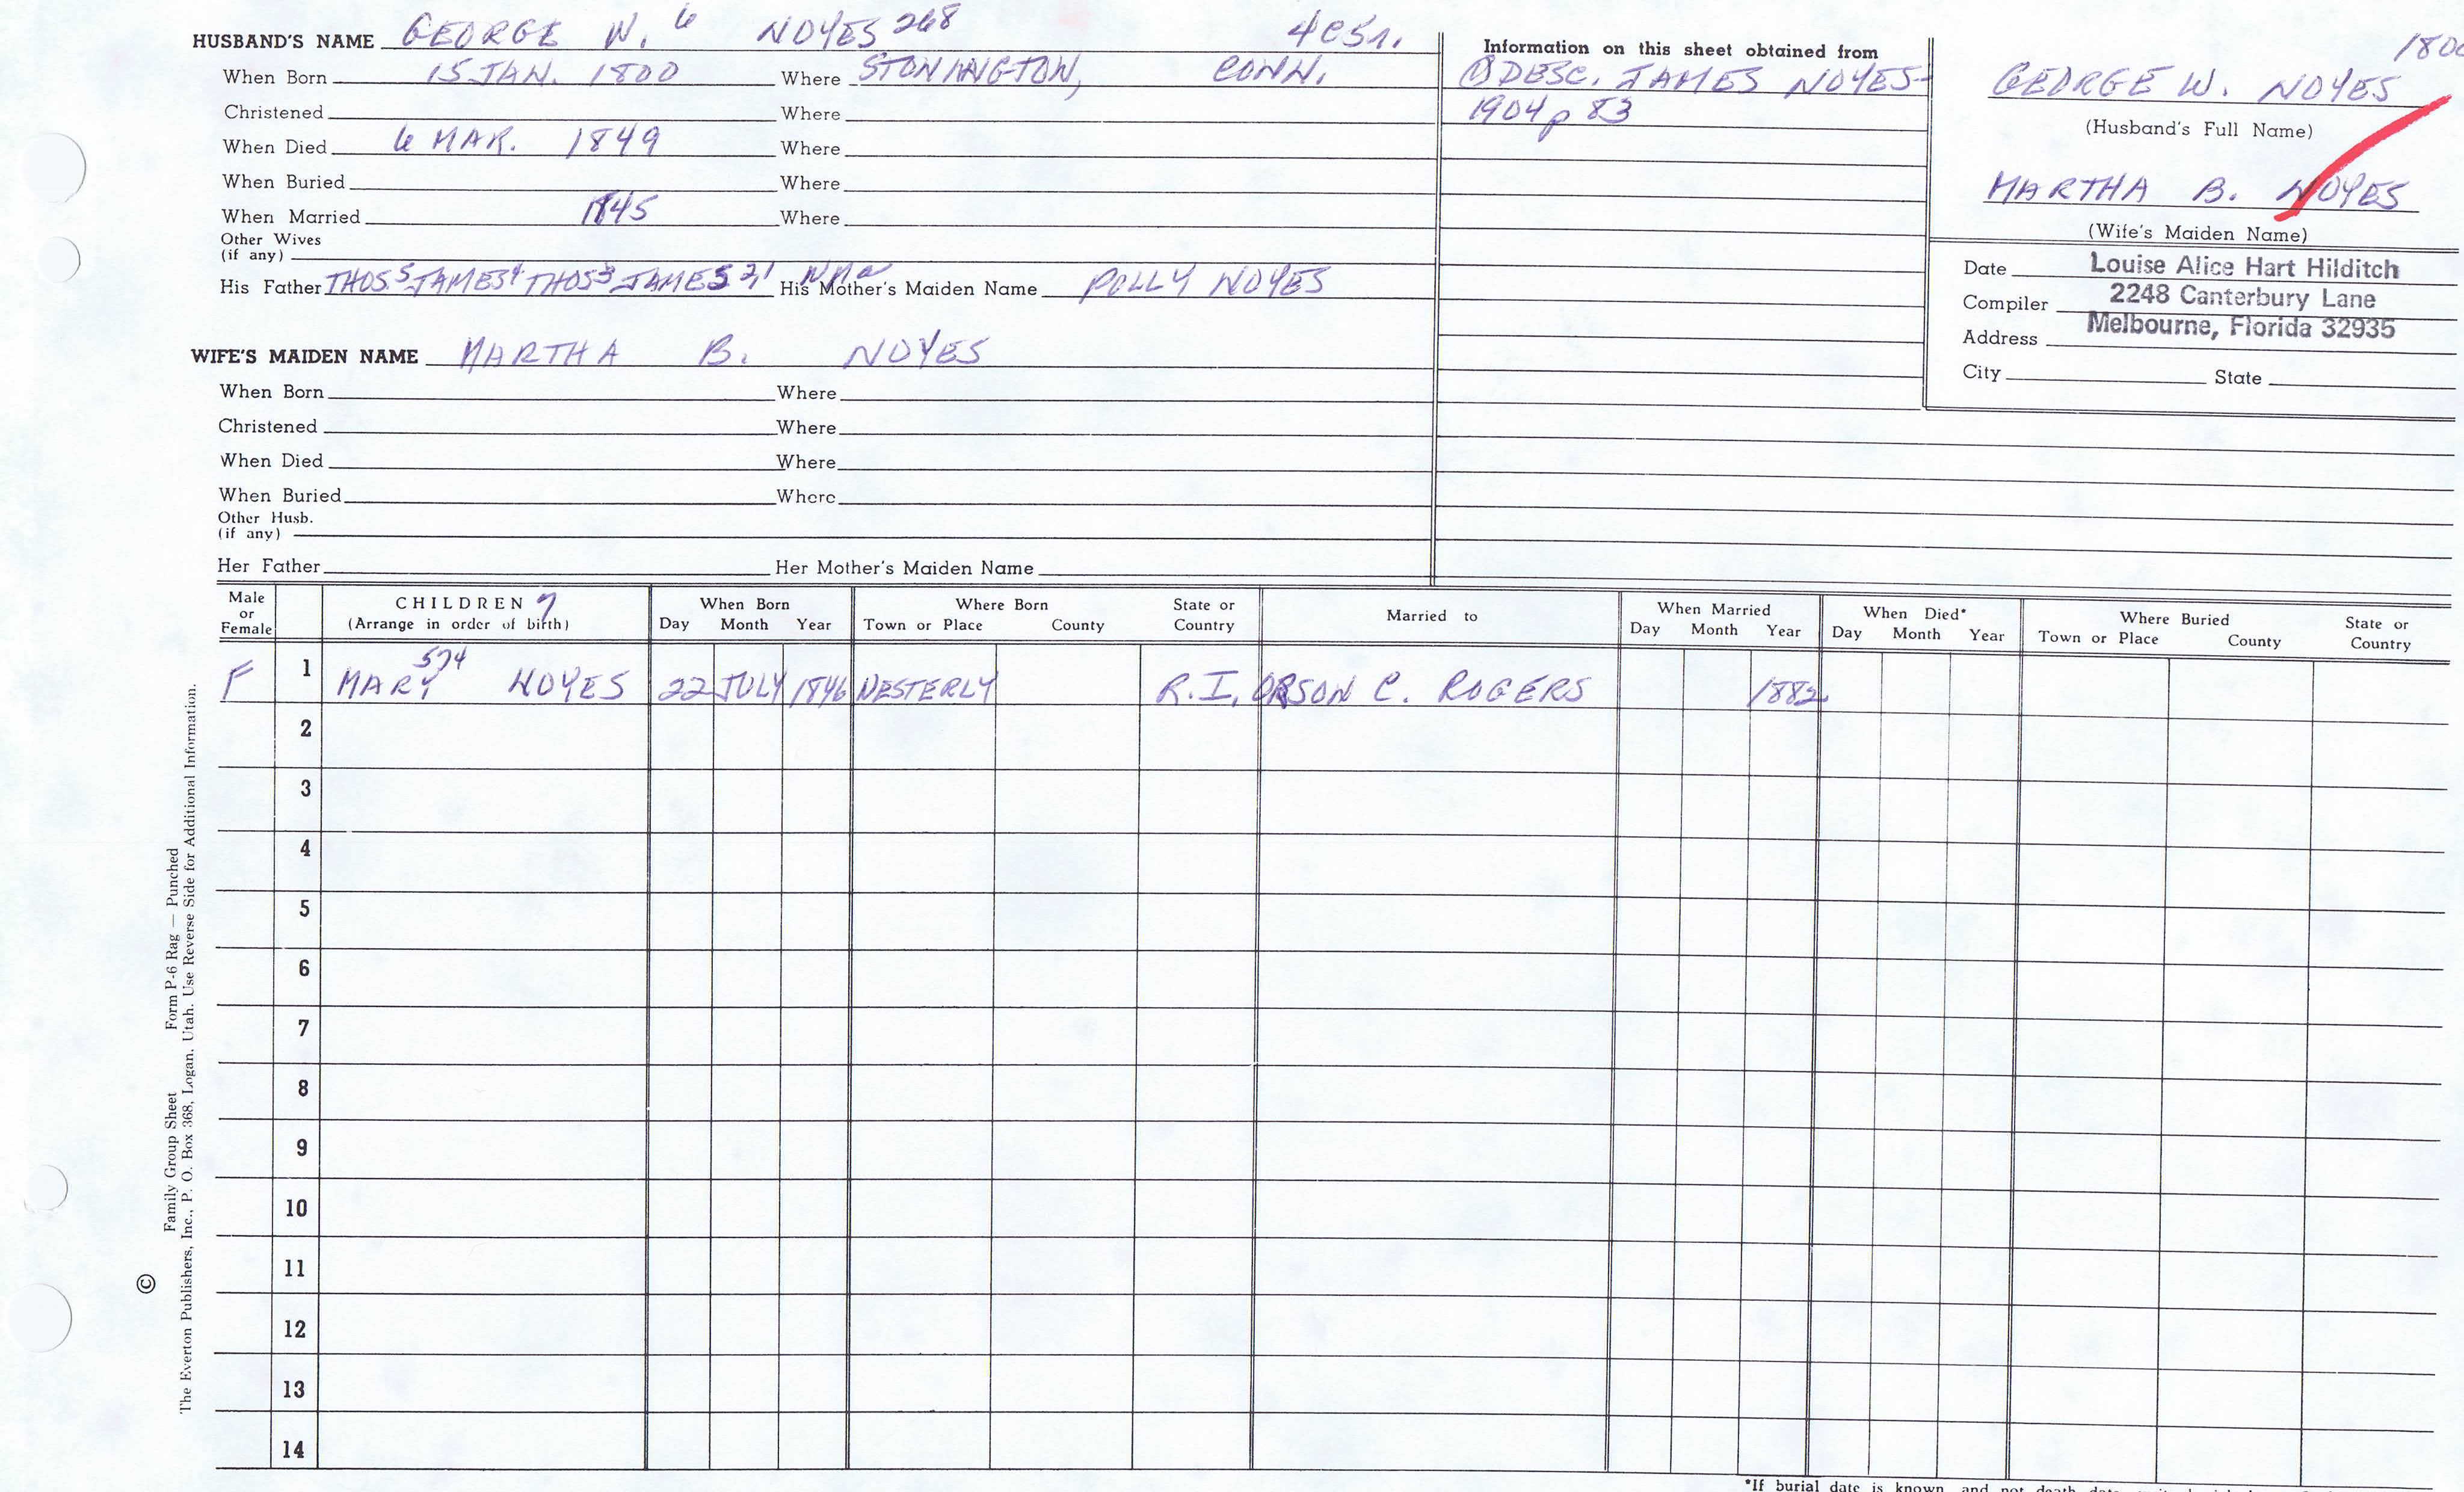 HUSBAND'S NAME GEORGE W. 6 NOYES 268 4C5r.
When Born 15 JAN. 1800 Where STONINGTON, CONN.
Christened Where
When Died 6 MAR. 1849 Where
When Buried Where
When Married 1845 Where
Other Wives
(if any)
His Father THOS 5 JAMES 4 THOS 3 JAMES 2,1 His Mother's Maiden Name POLLY NOYES
WIFE'S MAIDEN NAME MARTHA B. NOYES
When Born Where
Christened Where
When Died Where
When Buried Where
Other Husb.
(if any)
Her Father Her Mother's Maiden Name
Information on this sheet obtained from
① DESC. JAMES NOYES-
1904 p 83
GEORGE W. NOYES
(Husband's Full Name)
MARTHA B. NOYES
(Wife's Maiden Name)
Date Louise Alice Hart Hilditch
Compiler 2248 Canterbury Lane
Address Melbourne, Florida 32935
City State
Male or Female
CHILDREN 7
(Arrange in order of birth)
When Born
Day Month Year
Where Born
Town or Place County State or Country
Married to
When Married
Day Month Year
When Died*
Day Month Year
Where Buried
Town or Place County State or Country
F 1 MARY 574 NOYES 22 JULY 1846 WESTERLY R.I. ORSON C. ROGERS 1882
2
3
4
5
6
7
8
9
10
11
12
13
14
© Family Group Sheet Form P-6 Rag — Punched
The Everton Publishers, Inc., P. O. Box 368, Logan, Utah. Use Reverse Side for Additional Information.
*If burial date is known and not death date